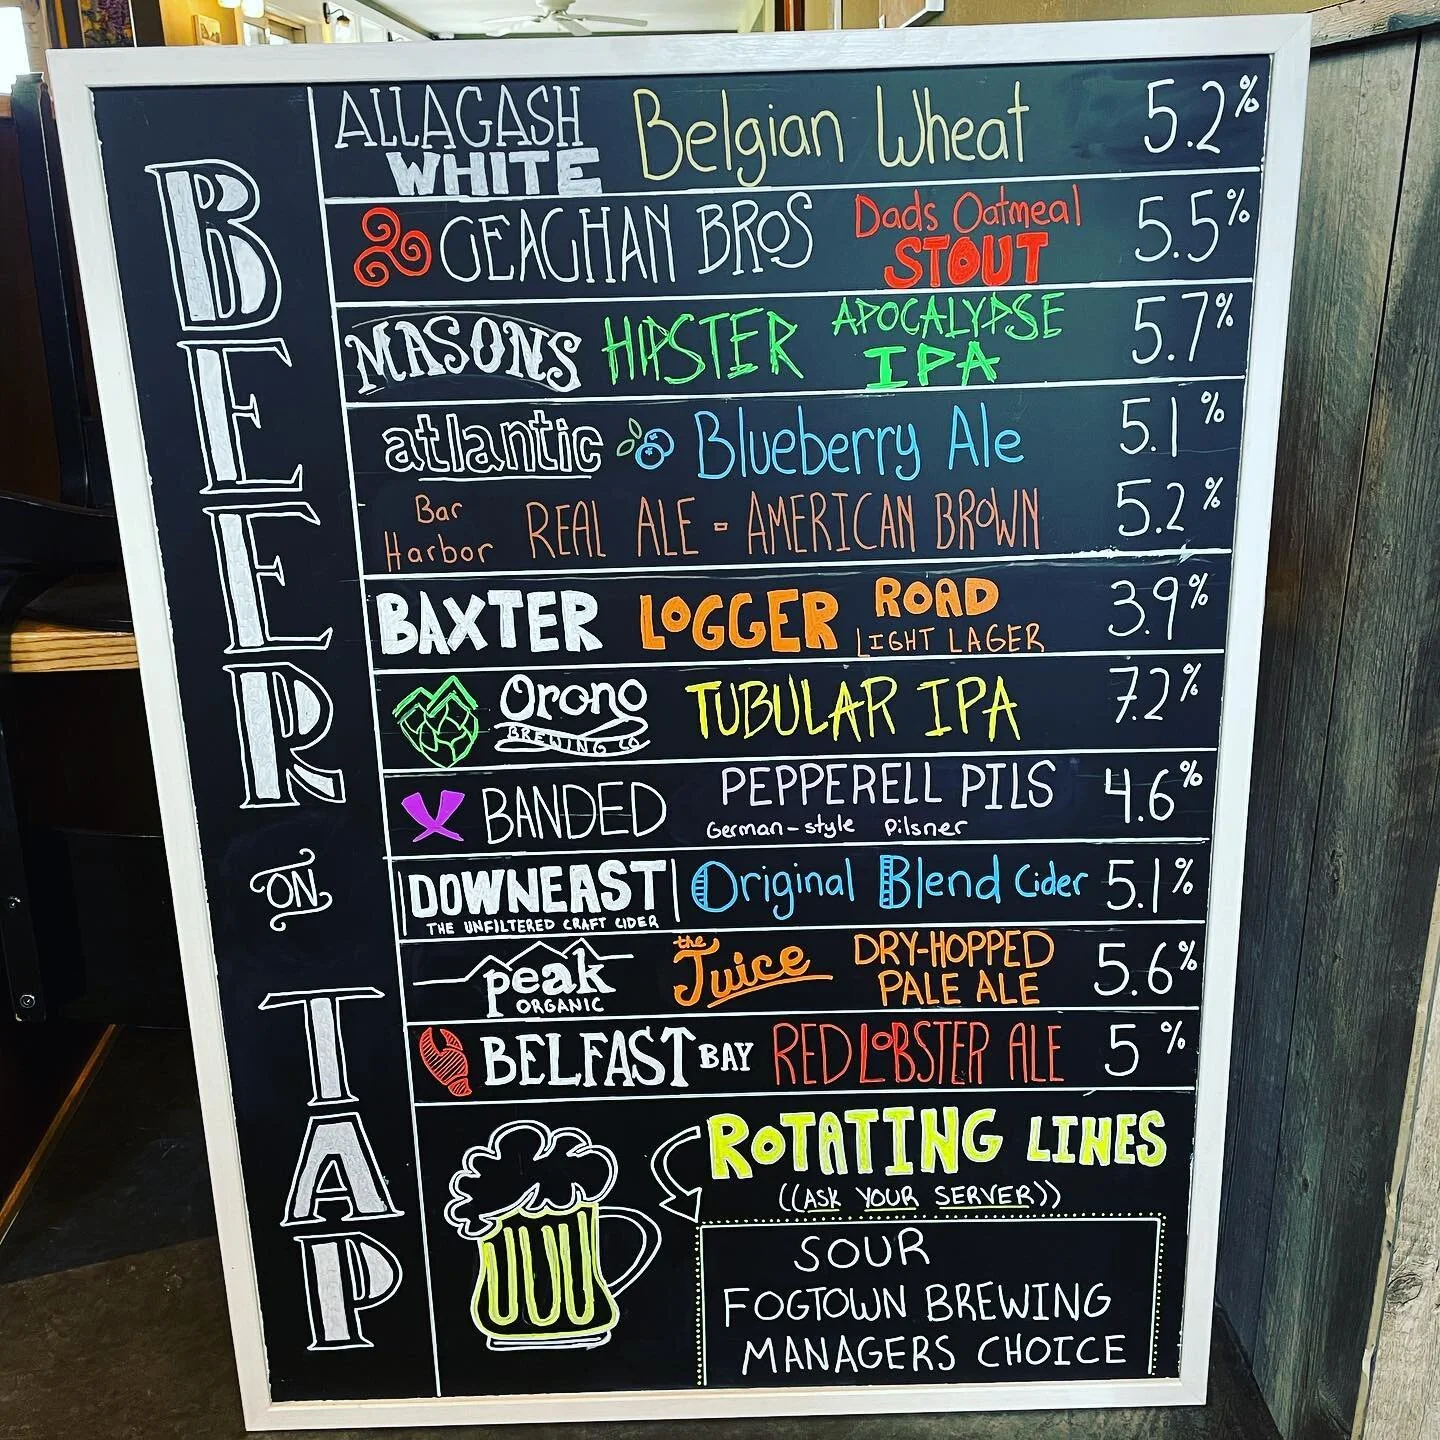 BEER ON TAP
ALLAGASH WHITE Belgian Wheat 5.2%
GEAGHAN BROS Dads Oatmeal STOUT 5.5%
MASONS HIPSTER APOCALYPSE IPA 5.7%
atlantic Blueberry Ale 5.1%
Bar Harbor REAL ALE - AMERICAN BROWN 5.2%
BAXTER LOGGER ROAD LIGHT LAGER 3.9%
Orono BREWING CO TUBULAR IPA 7.2%
BANDED PEPPERELL PILS 4.6%
German-style Pilsner
DOWNEAST Original Blend Cider 5.1%
THE UNFILTERED CRAFT CIDER
peak ORGANIC the Juice DRY-HOPPED PALE ALE 5.6%
BELFAST BAY RED LOBSTER ALE 5%
ROTATING LINES
((ASK YOUR SERVER))
SOUR
FOGTOWN BREWING
MANAGERS CHOICE